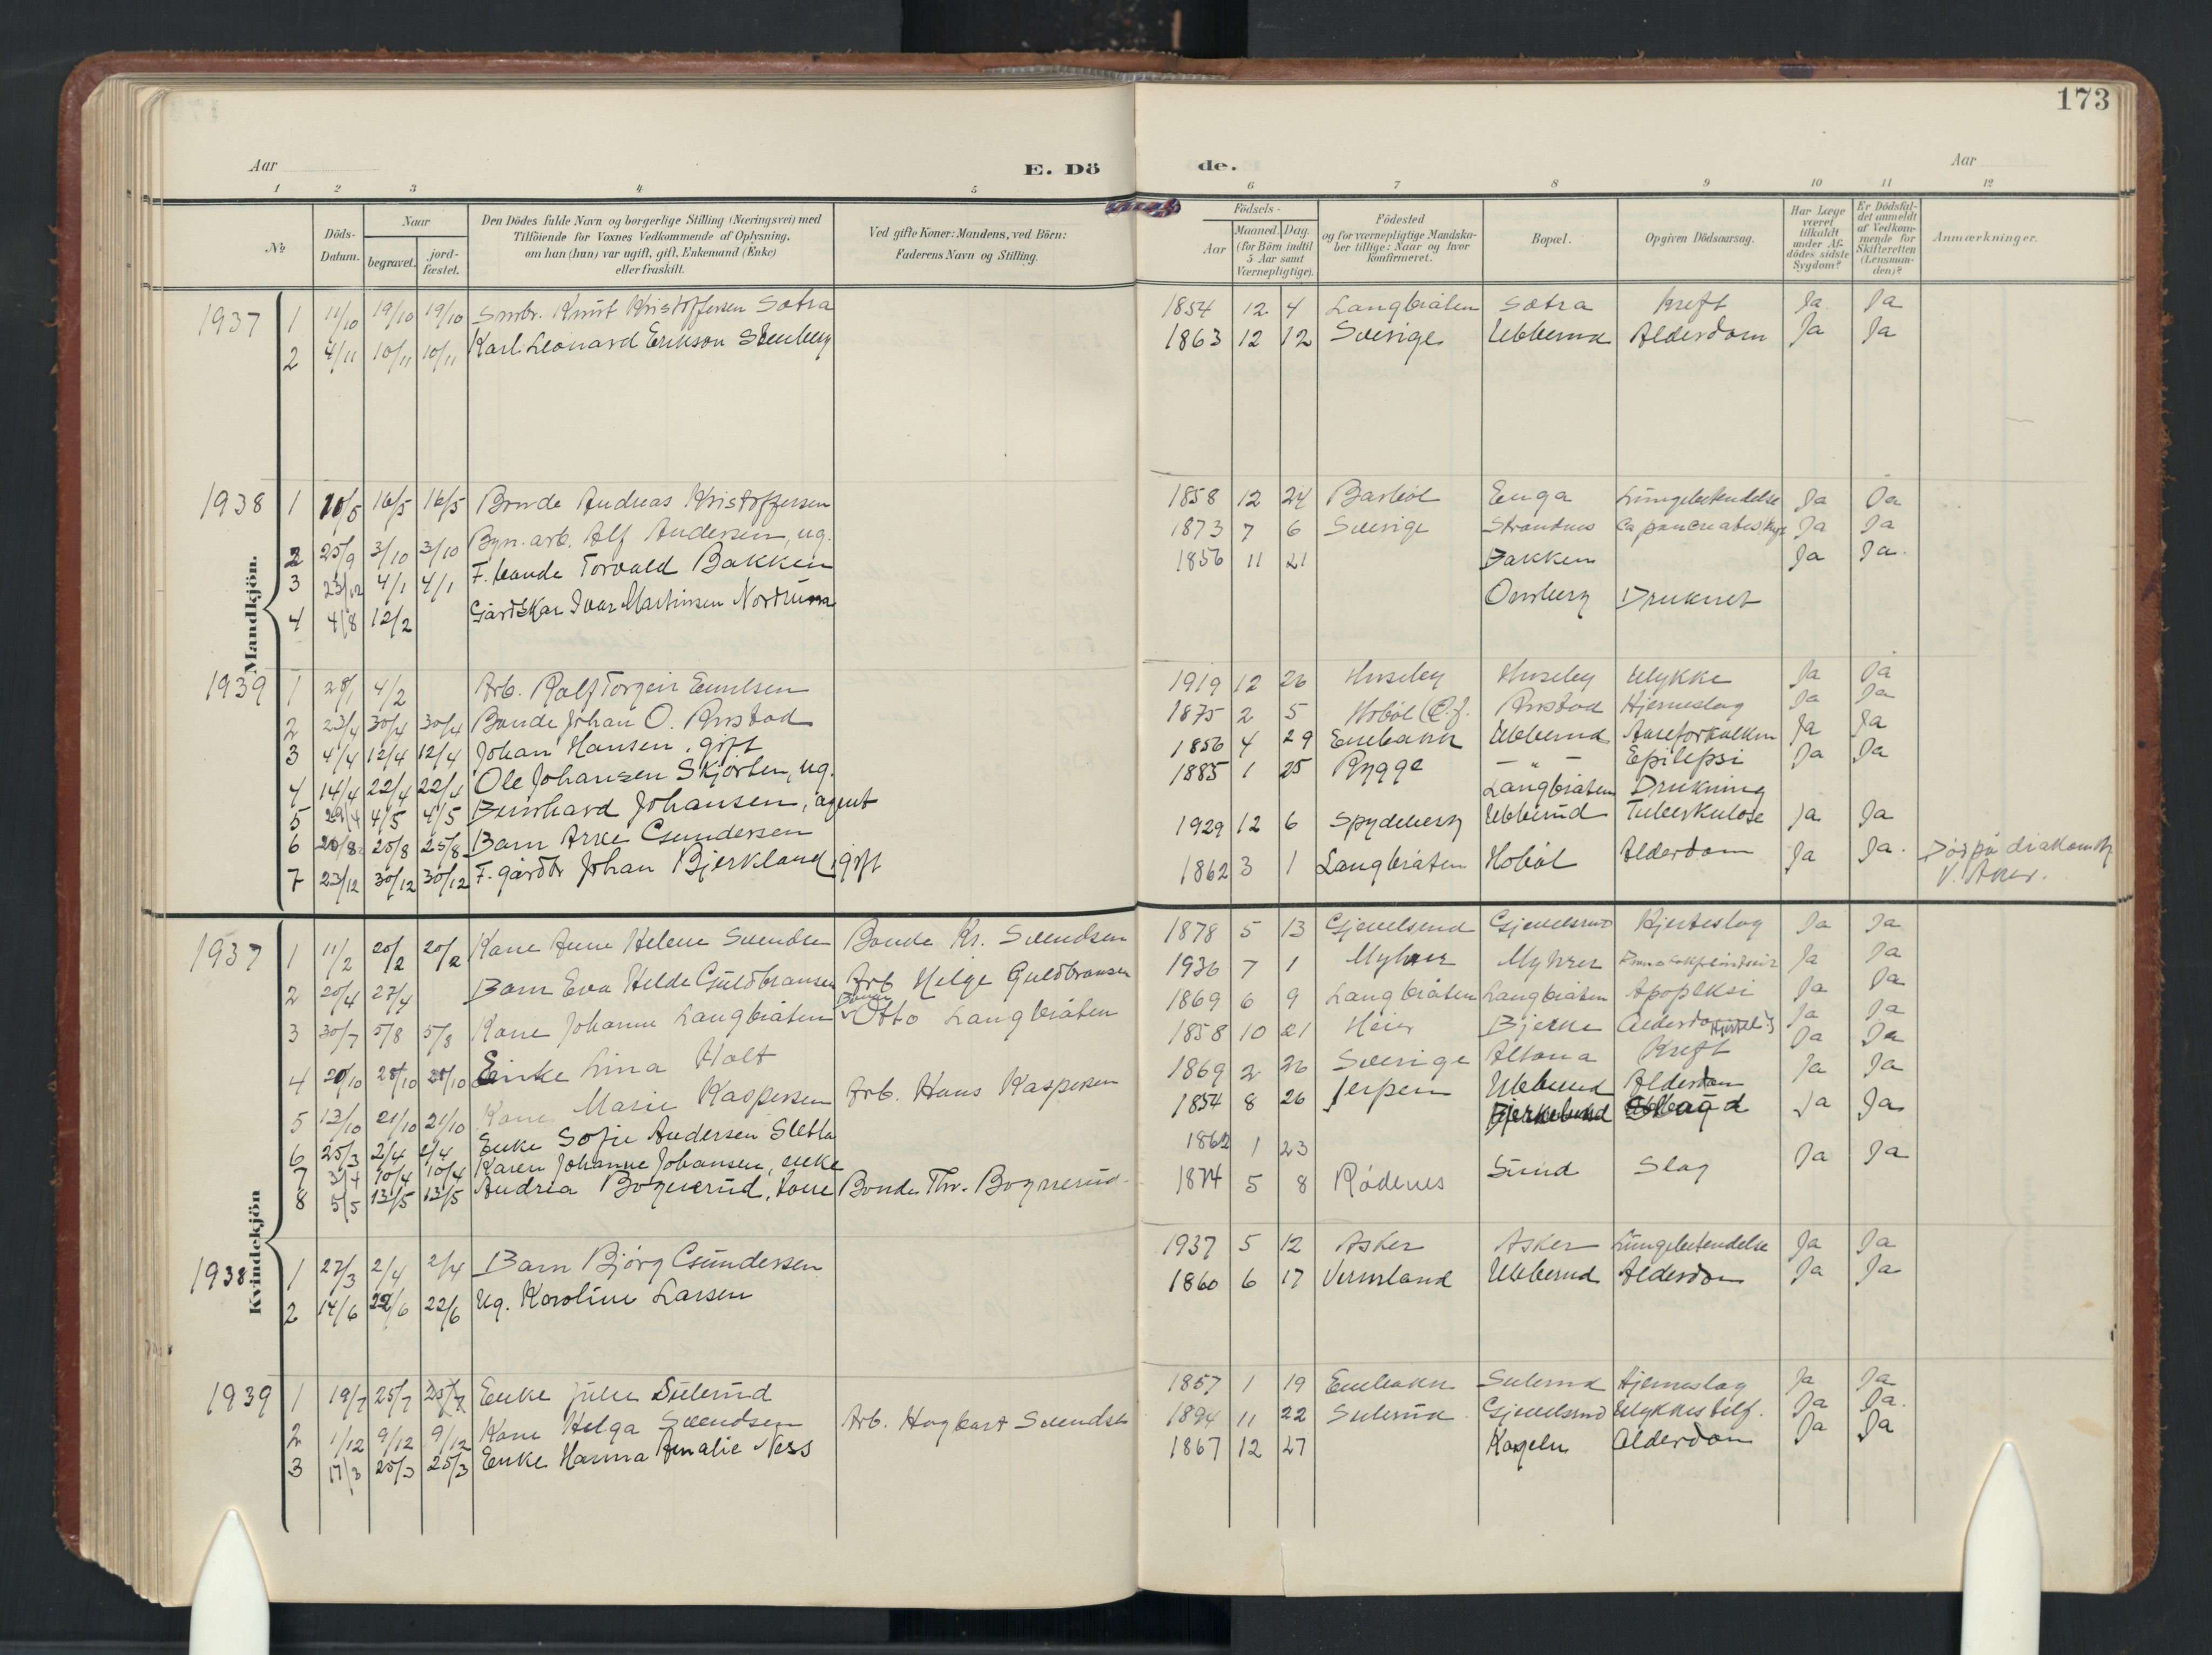 173
Aar E. Dö de. Aar
1 2 3 4 5 6 7 8 9 10 11 12
No
Döds-Datum.
Naar
begravet. jordfæstet.
Den Dödes fulde Navn og borgerlige Stilling (Næringsvei) med
Tilföiende for Voxnes Vedkommende af Oplysning,
om han (hun) var ugift, gift, Enkemand (Enke)
eller fraskilt.
Ved gifte Koner: Mandens, ved Börn:
Faderens Navn og Stilling.
Födsels-
Aar Maaned. Dag.
(for Börn indtil
5 Aar samt
Værnepligtige).
Födested
og for værnepligtige Mandska-
ber tillige: Naar og hvor
konfirmeret.
Bopæl.
Opgiven Dödsaarsag.
Har Læge
været
tilkaldt
under Af-
dödes sidste
Sygdom?
Er Dödsfal-
det anmeldt
af Vedkom-
mende for
Skifteretten
(Lensman-
den)?
Anmærkninger.
Mandkjön.
1937 1 11/10 19/10 19/10 Smbr. Knut Kristoffersen Sætra 1854 12 4 Langbråten Sætra Kreft Ja Ja
2 4/11 10/11 10/11 Karl Leonard Erikson Stenberg 1863 12 12 Sverige Ubberud Alderdom Ja Ja
1938 1 10/5 16/5 16/5 Bonde Andreas Kristoffersen 1858 12 24 Barbøl Enga Lungebetendelse Ja Ja
2 25/9 3/10 3/10 Byn. arb. Alf Andersen, ug. 1873 7 6 Sverige Strandnes Ca pancreatus Ja Ja
3 23/12 4/1 4/1 F. bonde Torvald Bakken 1856 11 21 Bakken Ja Ja.
4 4/8 12/2 Gårdskar Ivar Martinsen Nordrum Omberg Druknet
1939 1 28/1 4/2 Arb. Rolf Torgeir Emilsen 1919 12 26 Huseby Huseby Ulykke Ja Ja
2 23/4 30/4 30/4 Bonde Johan O. Rustad 1875 2 5 Hobøl Rustad Hjerneslag Ja Ja
3 4/4 12/4 12/4 Johan Hansen, gift 1856 4 29 Enebakk Ubberud Aareforkalkn Ja Ja
4 14/4 22/4 22/4 Ole Johansen Skjørten, ug. 1885 1 25 Rygge — " — Epilepsi Ja Ja
5 29/4 4/5 4/5 Bernhard Johansen, agent Langbråten Drukning
6 20/8 25/8 25/8 Barn Arne Gundersen 1929 12 6 Spydeberg Ubberud Tuberkulose Ja Ja
7 23/12 30/12 30/12 F. gårdbr Johan Bjerkland, gift 1862 3 1 Langbråten Hobøl Alderdom Ja Ja. Død på diakonhj
V. Aker.
Kvindekjön
1937 1 11/2 20/2 20/2 Kone Anne Helene Svendsen Bonde Kr. Svendsen 1878 5 13 Gjevelsrud Gjevelsrud Hjerteslag Ja Ja
2 20/4 27/4 Barn Eva Helde Guldbransen Arb Helge Guldbransen 1936 7 1 Myhrer Myhrer Ja Ja
3 30/7 5/8 5/8 Kone Johanne Langbråten Bonde Otto Langbråten 1869 6 9 Langbråten Langbråten Apopleksi Ja Ja
4 20/10 28/10 28/10 Enke Lina Holt 1858 10 21 Heier Bjerke Alderdom Ja Ja
5 13/10 21/10 21/10 Kone Marie Kaspersen Arb. Hans Kaspersen 1869 2 26 Sverige Altona Kreft Ja Ja
6 25/3 2/4 2/4 Enke Sofie Andersen Sletta 1854 8 26 Jerpen Ubberud Alderdom Ja Ja
7 3/4 10/4 10/4 Karen Johanne Johansen, enke 1862 1 23 Bjerkelund Ja Ja
8 5/5 13/5 13/5 Andrea Bognerud, kone Bonde Thv. Bognerud. 1874 5 8 Rødenes Sund Slag Ja Ja
1938 1 27/3 2/4 2/4 Barn Bjørg Gundersen 1937 5 12 Asker Asker Lungebetendelse Ja Ja
2 14/6 22/6 22/6 Ug. Karoline Larsen 1860 6 17 Vermland Ubberud Alderdom Ja Ja
1939 1 19/7 25/7 25/7 Enke Julie Sulerud 1857 1 19 Enebakk Sulerud Hjerneslag Ja Ja
2 1/12 9/12 9/12 Kone Helga Svendsen Arb. Hagbart Svendsen 1894 11 22 Sulerud Gjevelsrud Ulykkestilf. Ja Ja.
3 17/3 25/3 25/3 Enke Hanna Amalie Ness 1867 12 27 Kageln Alderdom Ja Ja